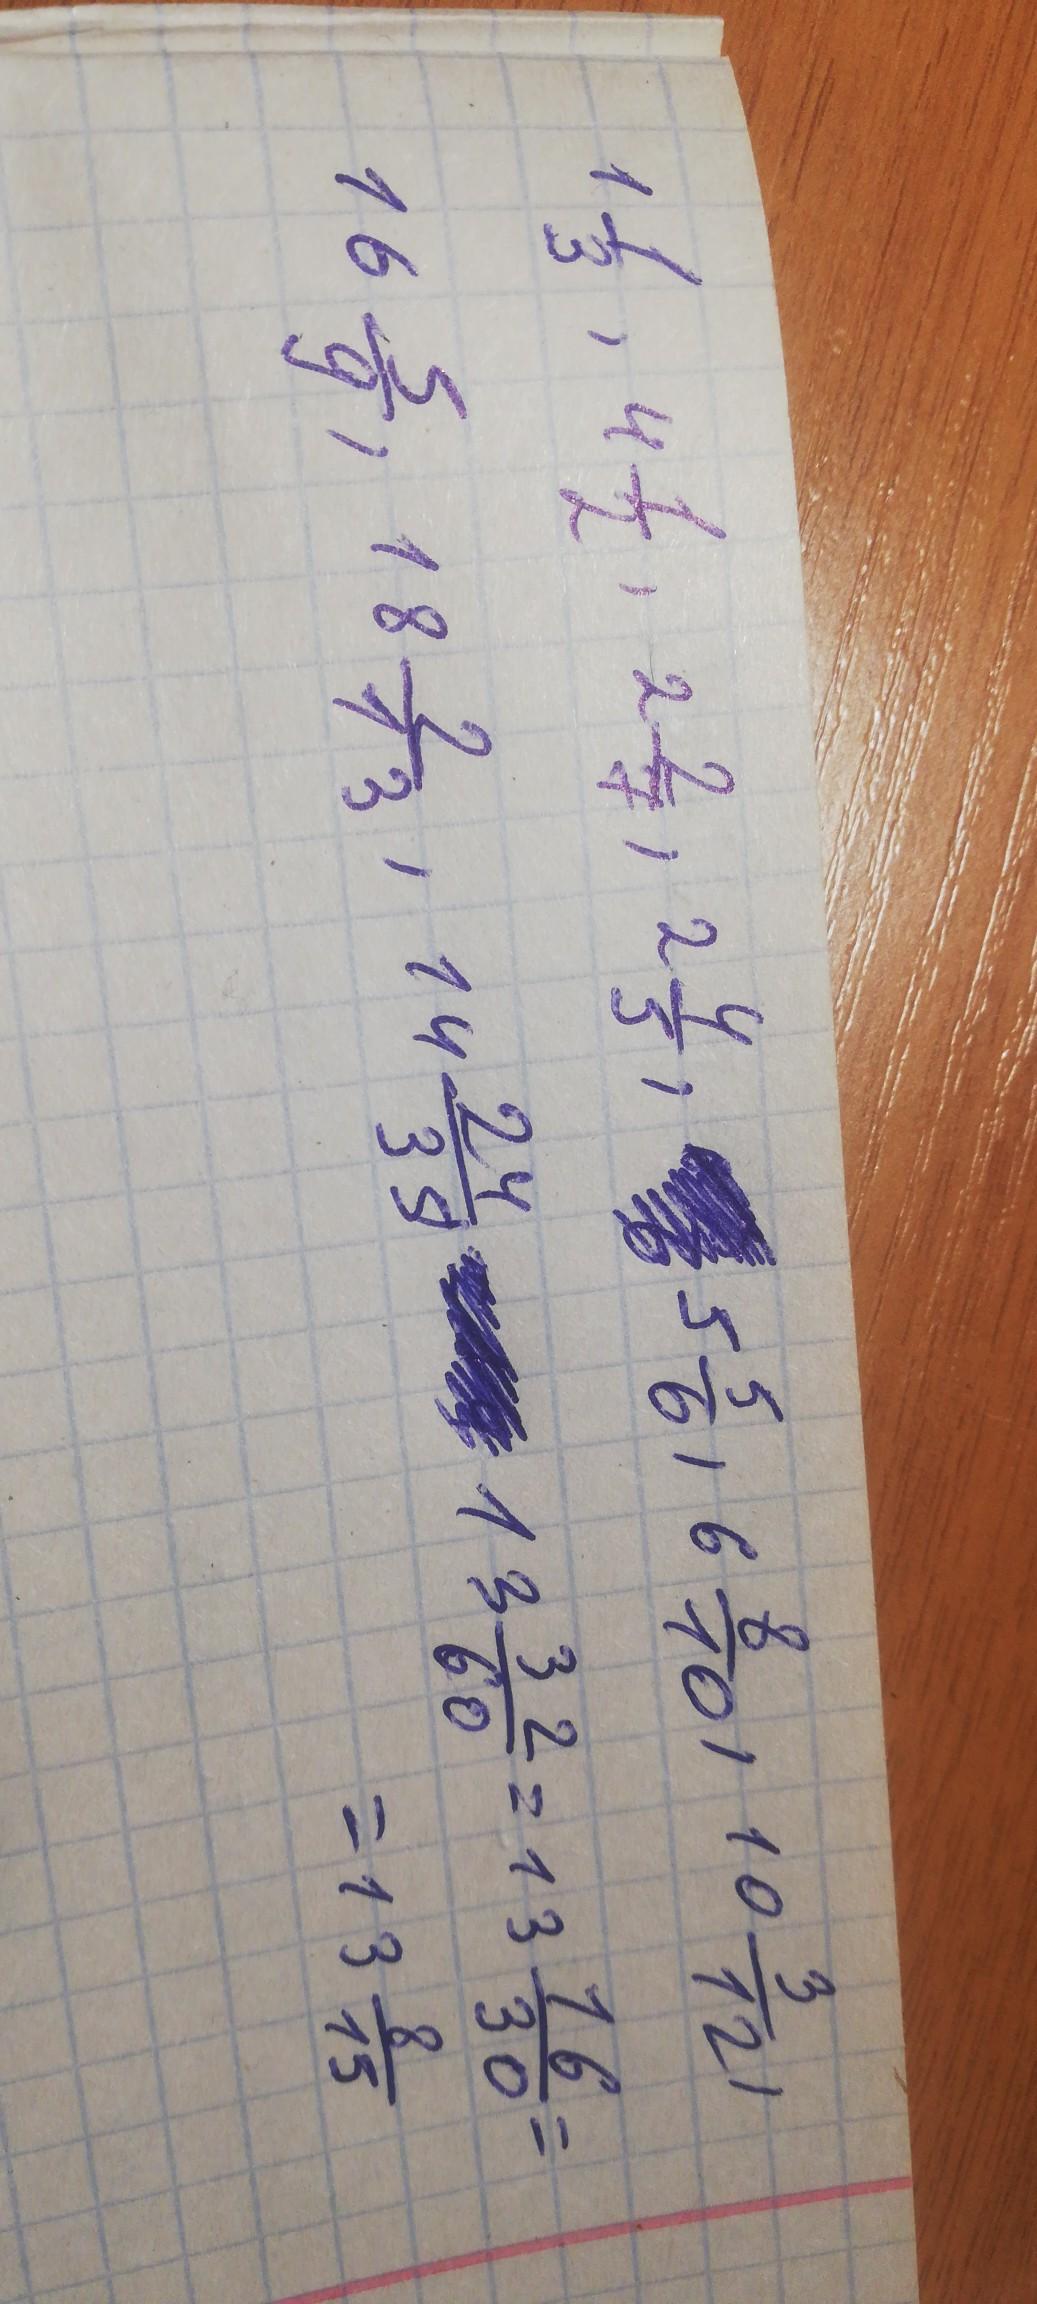 1 1/3, 4 1/2, 2 2/7, 2 4/5, 5 5/6, 6 8/10, 10 3/12,
16 5/9, 18 2/13, 14 24/39 13 32/60 = 13 16/30 =
= 13 8/15